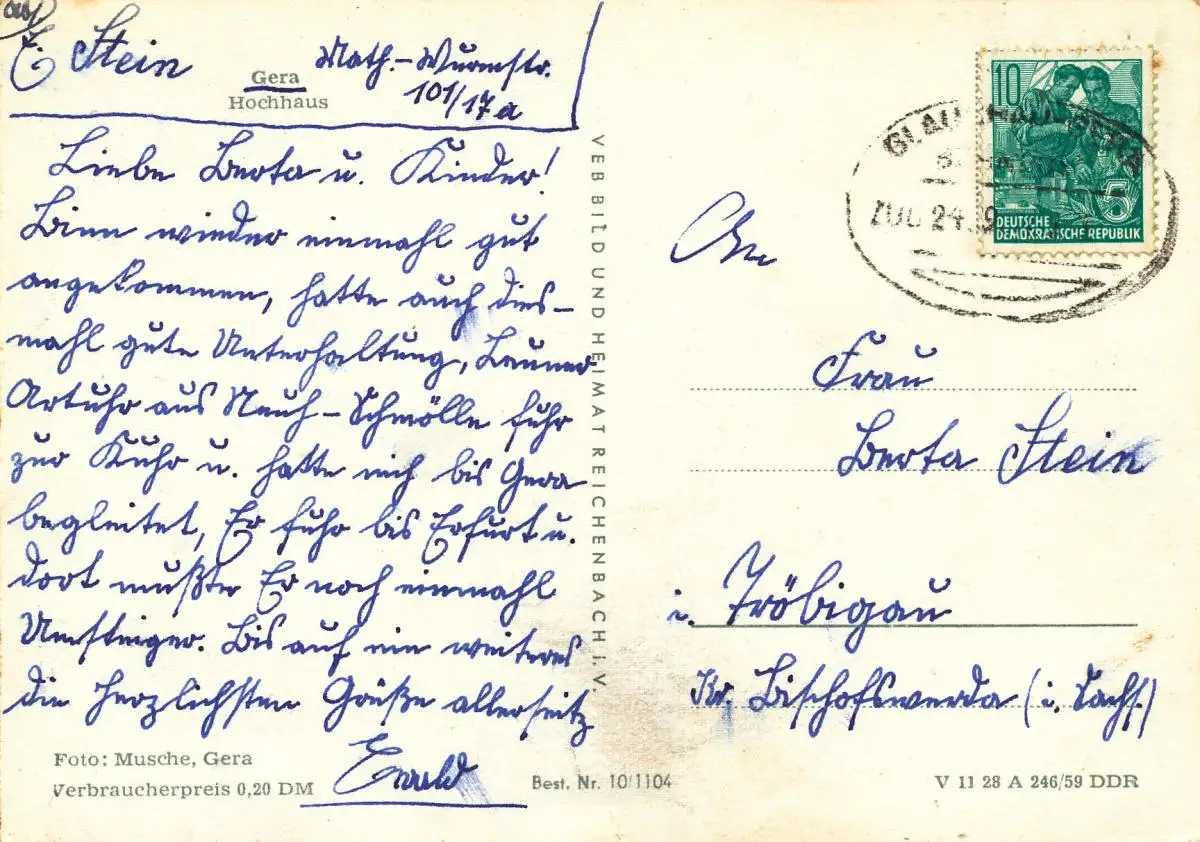 E. Stein
Math.-Wurmstr.
101/17a
Gera
Hochhaus
Liebe Berta u. Kinder!
Binn wieder einmahl gut
angekommen, hatte auch dies-
mahl gute Unterhaltung,
Artuhr aus Neuh-Schmölle fuhr
zur Kuhr u. hatte mich bis Gera
begleitet, Er fuhr bis Erfurt u.
dort mußte Er noch einmahl
Umsteiger. Bis auf ein weiteres
die herzlichsten Grüße allerseitz
Ewald
Foto: Musche, Gera
Verbraucherpreis 0,20 DM
VEB BILD UND HEIMAT REICHENBACH I. V.
Best. Nr. 10/1104
10
5
DEUTSCHE
DEMOKRATISCHE REPUBLIK
GLAUCHAU-GERA
ZUG 24
An
Frau
Berta Stein
i. Tröbigau
Kr. Bischofswerda (i. Sachs.)
V 11 28 A 246/59 DDR